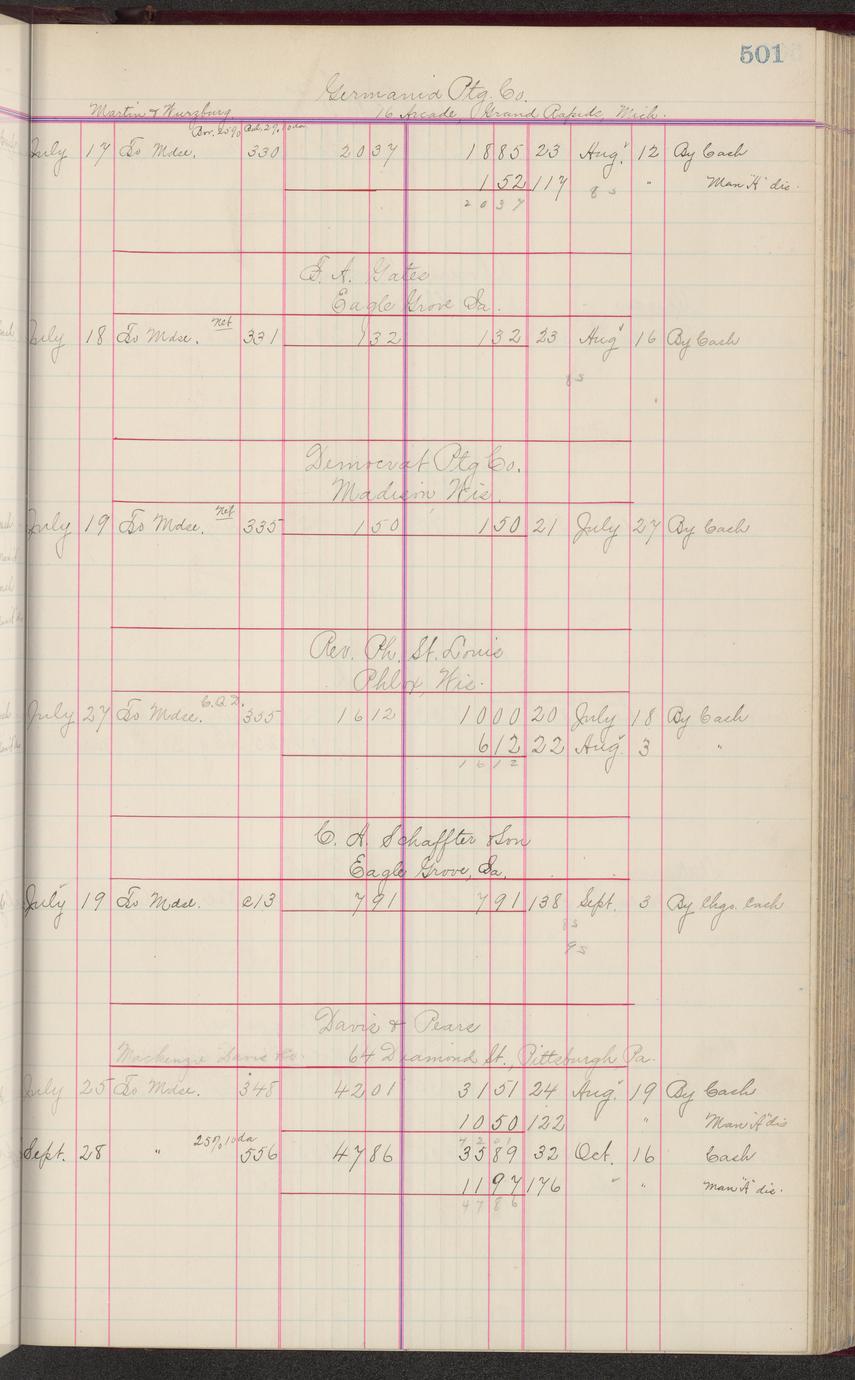 501
Germania Ptg. Co.
Martin & Wurzburg 16 Arcade, Grand Rapids, Mich.
July 17 To Mdse. 330 2037 1885 23 Aug. 12 By Cash
152 117 8 s " Man "A" dis.
2037
F. A. Gates
Eagle Grove Ia.
July 18 To Mdse. Net 331 132 132 23 Aug 16 By Cash
8 s
Democrat Ptg Co.
Madison, Wis.
July 19 To Mdse. Net 335 150 150 21 July 27 By Cash
Rev. Ph. St. Louis
Phlox, Wis.
July 27 To Mdse. C.O.D. 355 1612 1000 20 July 18 By Cash
612 22 Aug. 3 "
1612
C. A. Schaffter & Son
Eagle Grove, Ia.
July 19 To Mdse. c13 791 791 138 Sept. 3 By Chgs. Cash
8 s
9 s
Davis & Pears
Mackenzie Davis Co. 64 Diamond St., Pittsburgh Pa.
July 25 To Mdse. 348 4201 3151 24 Aug. 19 By Cash
1050 122 " Man "A" dis
4201
Sept. 28 " 25% 10 da 556 4786 3589 32 Oct. 16 Cash
1197 176 " " Man "A" dis.
4786